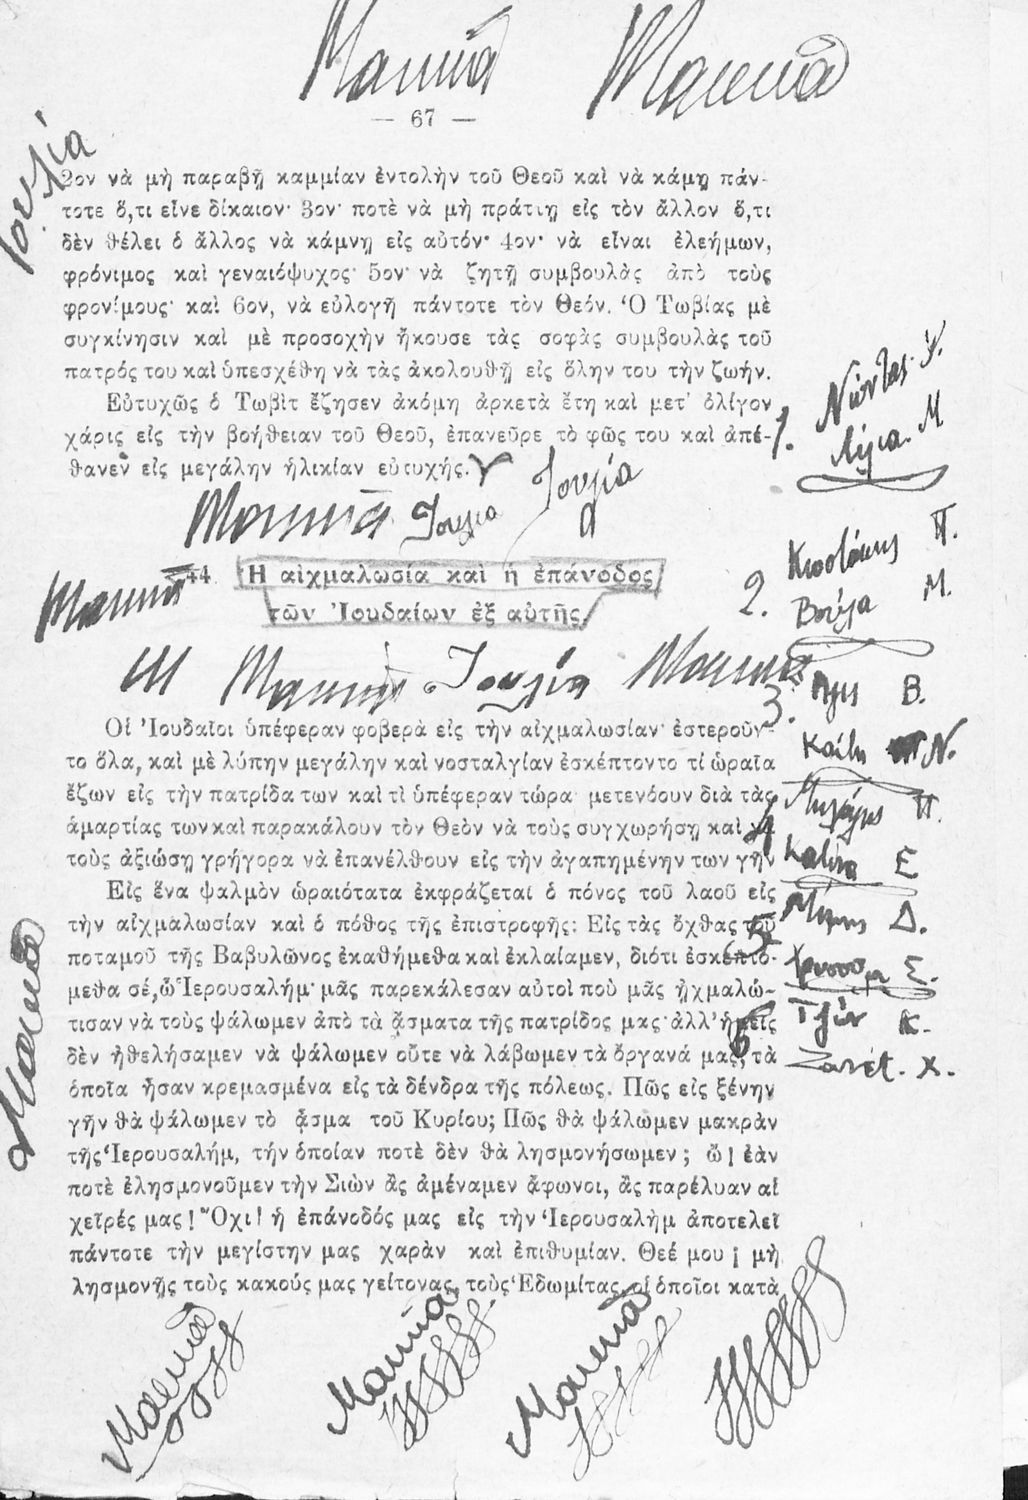 — 67 —
Ἰουλία
2ον νὰ μὴ παραβῇ καμμίαν ἐντολὴν τοῦ Θεοῦ καὶ νὰ κάμῃ πάν-
τοτε ὅ,τι εἶνε δίκαιον· 3ον· ποτὲ νὰ μὴ πράττῃ εἰς τὸν ἄλλον ὅ,τι
δὲν θέλει ὁ ἄλλος νὰ κάμνῃ εἰς αὐτόν· 4ον· νὰ εἶναι ἐλεήμων,
φρόνιμος καὶ γεναιόψυχος· 5ον· νὰ ζητῇ συμβουλὰς ἀπὸ τοὺς
φρονίμους· καὶ 6ον, νὰ εὐλογῇ πάντοτε τὸν Θεόν. Ὁ Τωβίας μὲ
συγκίνησιν καὶ μὲ προσοχὴν ἤκουσε τὰς σοφὰς συμβουλὰς τοῦ
πατρός του καὶ ὑπεσχέθη νὰ τὰς ἀκολουθῇ εἰς ὅλην του τὴν ζωήν.
Εὐτυχῶς ὁ Τωβὶτ ἔζησεν ἀκόμη ἀρκετὰ ἔτη καὶ μετ' ὀλίγον
χάρις εἰς τὴν βοήθειαν τοῦ Θεοῦ, ἐπανεῦρε τὸ φῶς του καὶ ἀπέ-
θανεν εἰς μεγάλην ἡλικίαν εὐτυχής.
Ἰουλία
Ἰουλία
44 Ἡ αἰχμαλωσία καὶ ἡ ἐπάνοδος
τῶν Ἰουδαίων ἐξ αὐτῆς.
Ἰουλία
Οἱ Ἰουδαῖοι ὑπέφεραν φοβερὰ εἰς τὴν αἰχμαλωσίαν· ἐστεροῦν-
το ὅλα, καὶ μὲ λύπην μεγάλην καὶ νοσταλγίαν ἐσκέπτοντο τί ὡραῖα
ἔζων εἰς τὴν πατρίδα των καὶ τὶ ὑπέφεραν τώρα· μετενόουν διὰ τὰς
ἁμαρτίας των καὶ παρακάλουν τὸν Θεὸν νὰ τοὺς συγχωρήσῃ καὶ νὰ
τοὺς ἀξιώσῃ γρήγορα νὰ ἐπανέλθουν εἰς τὴν ἀγαπημένην των γῆν
Εἰς ἕνα ψαλμὸν ὡραιότατα ἐκφράζεται ὁ πόνος τοῦ λαοῦ εἰς
τὴν αἰχμαλωσίαν καὶ ὁ πόθος τῆς ἐπιστροφῆς: Εἰς τὰς ὄχθας τοῦ
ποταμοῦ τῆς Βαβυλῶνος ἐκαθήμεθα καὶ ἐκλαίαμεν, διότι ἐσκεπτό-
μεθα σέ, ὦ Ἱερουσαλήμ· μᾶς παρεκάλεσαν αὐτοὶ ποὺ μᾶς ᾐχμαλώ-
τισαν νὰ τοὺς ψάλωμεν ἀπὸ τὰ ᾄσματα τῆς πατρίδος μας· ἀλλ' ἡμεῖς
δὲν ἠθελήσαμεν νὰ ψάλωμεν οὔτε νὰ λάβωμεν τὰ ὄργανά μας, τὰ
ὁποῖα ἦσαν κρεμασμένα εἰς τὰ δένδρα τῆς πόλεως. Πῶς εἰς ξένην
γῆν θὰ ψάλωμεν τὸ ᾆσμα τοῦ Κυρίου; Πῶς θὰ ψάλωμεν μακρὰν
τῆς Ἱερουσαλήμ, τὴν ὁποίαν ποτὲ δὲν θὰ λησμονήσωμεν; ὤ! ἐὰν
ποτὲ ἐλησμονοῦμεν τὴν Σιὼν ἂς ἀμέναμεν ἄφωνοι, ἂς παρέλυαν αἱ
χεῖρές μας! Ὄχι! ἡ ἐπάνοδός μας εἰς τὴν Ἱερουσαλὴμ ἀποτελεῖ
πάντοτε τὴν μεγίστην μας χαρὰν καὶ ἐπιθυμίαν. Θεέ μου! μὴ
λησμονῇς τοὺς κακούς μας γείτονας, τοὺς Ἐδωμίτας, οἱ ὁποῖοι κατὰ
1.
Λίλια. Μ
2. Κωστάκης Π.
Βούλα Μ.
3. Άγις Β.
Καίτη Ν.
4 Μιχάλης Π.
Κατίνα Ε
5 Μίμης Δ.
Σ.
6 Τζών Κ.
Ζανέτ. Χ.